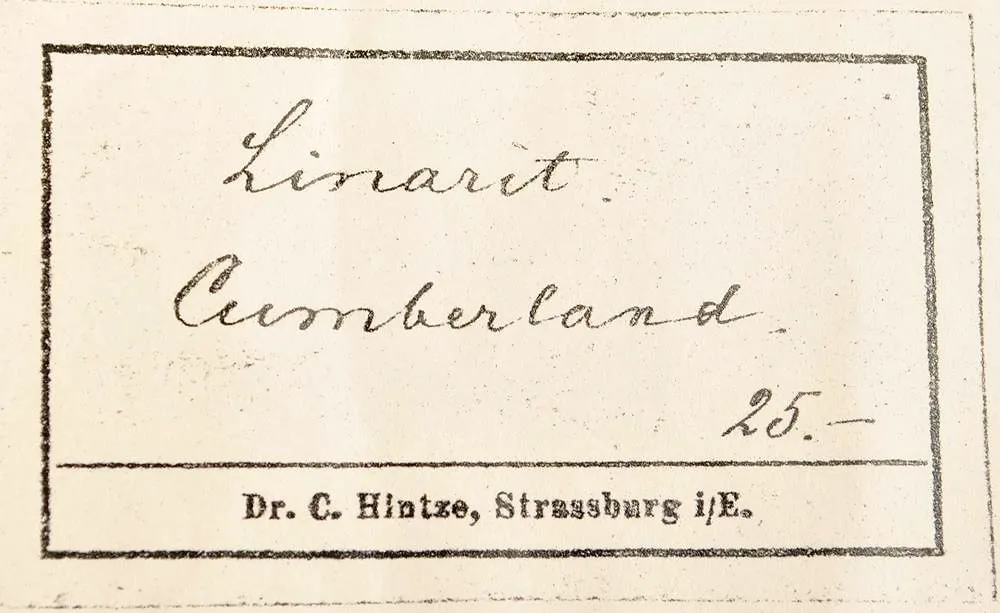 Linarit.
Cumberland.
25.-
Dr. C. Hintze, Strassburg i/E.